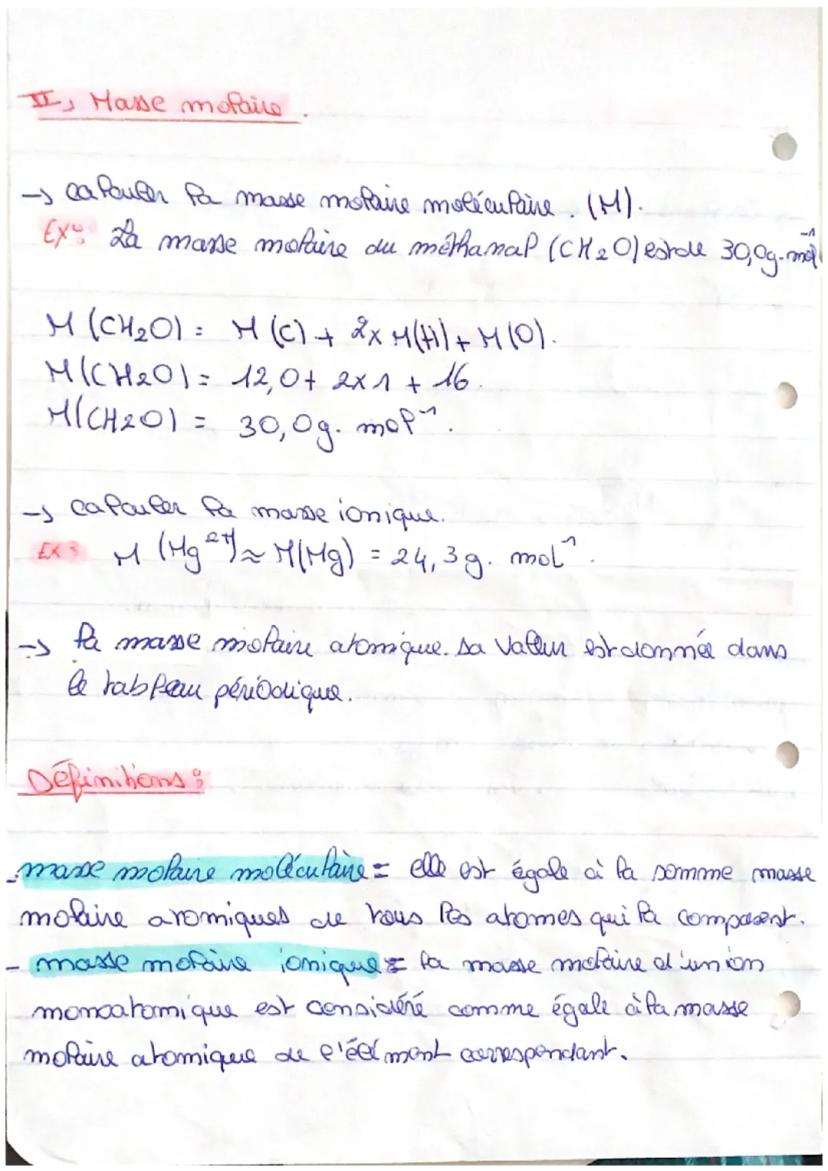 II, Masse molaire.
→ calculer la masse molaire moléculaire. (M).
Ex: La masse molaire du méthanal (CH2O) est de 30,0g.mol⁻¹
M (CH2O) = M (C) + 2x M(H) + M(O).
M(CH2O) = 12,0 + 2x1 + 16.
M(CH2O) = 30,0g. mol⁻¹.
→ calculer la masse ionique.
Ex: M (Mg²⁺) ≈ M(Mg) = 24,3g. mol⁻¹.
→ la masse molaire atomique. sa valeur est donnée dans
le tableau périodique.
Définitions:
-masse molaire moléculaire = elle est égale à la somme masse
molaire atomiques de tous les atomes qui la composent.
- masse molaire ionique = la masse molaire d'un ion
monoatomique est considéré comme égale à la masse
molaire atomique de l'élément correspondant.